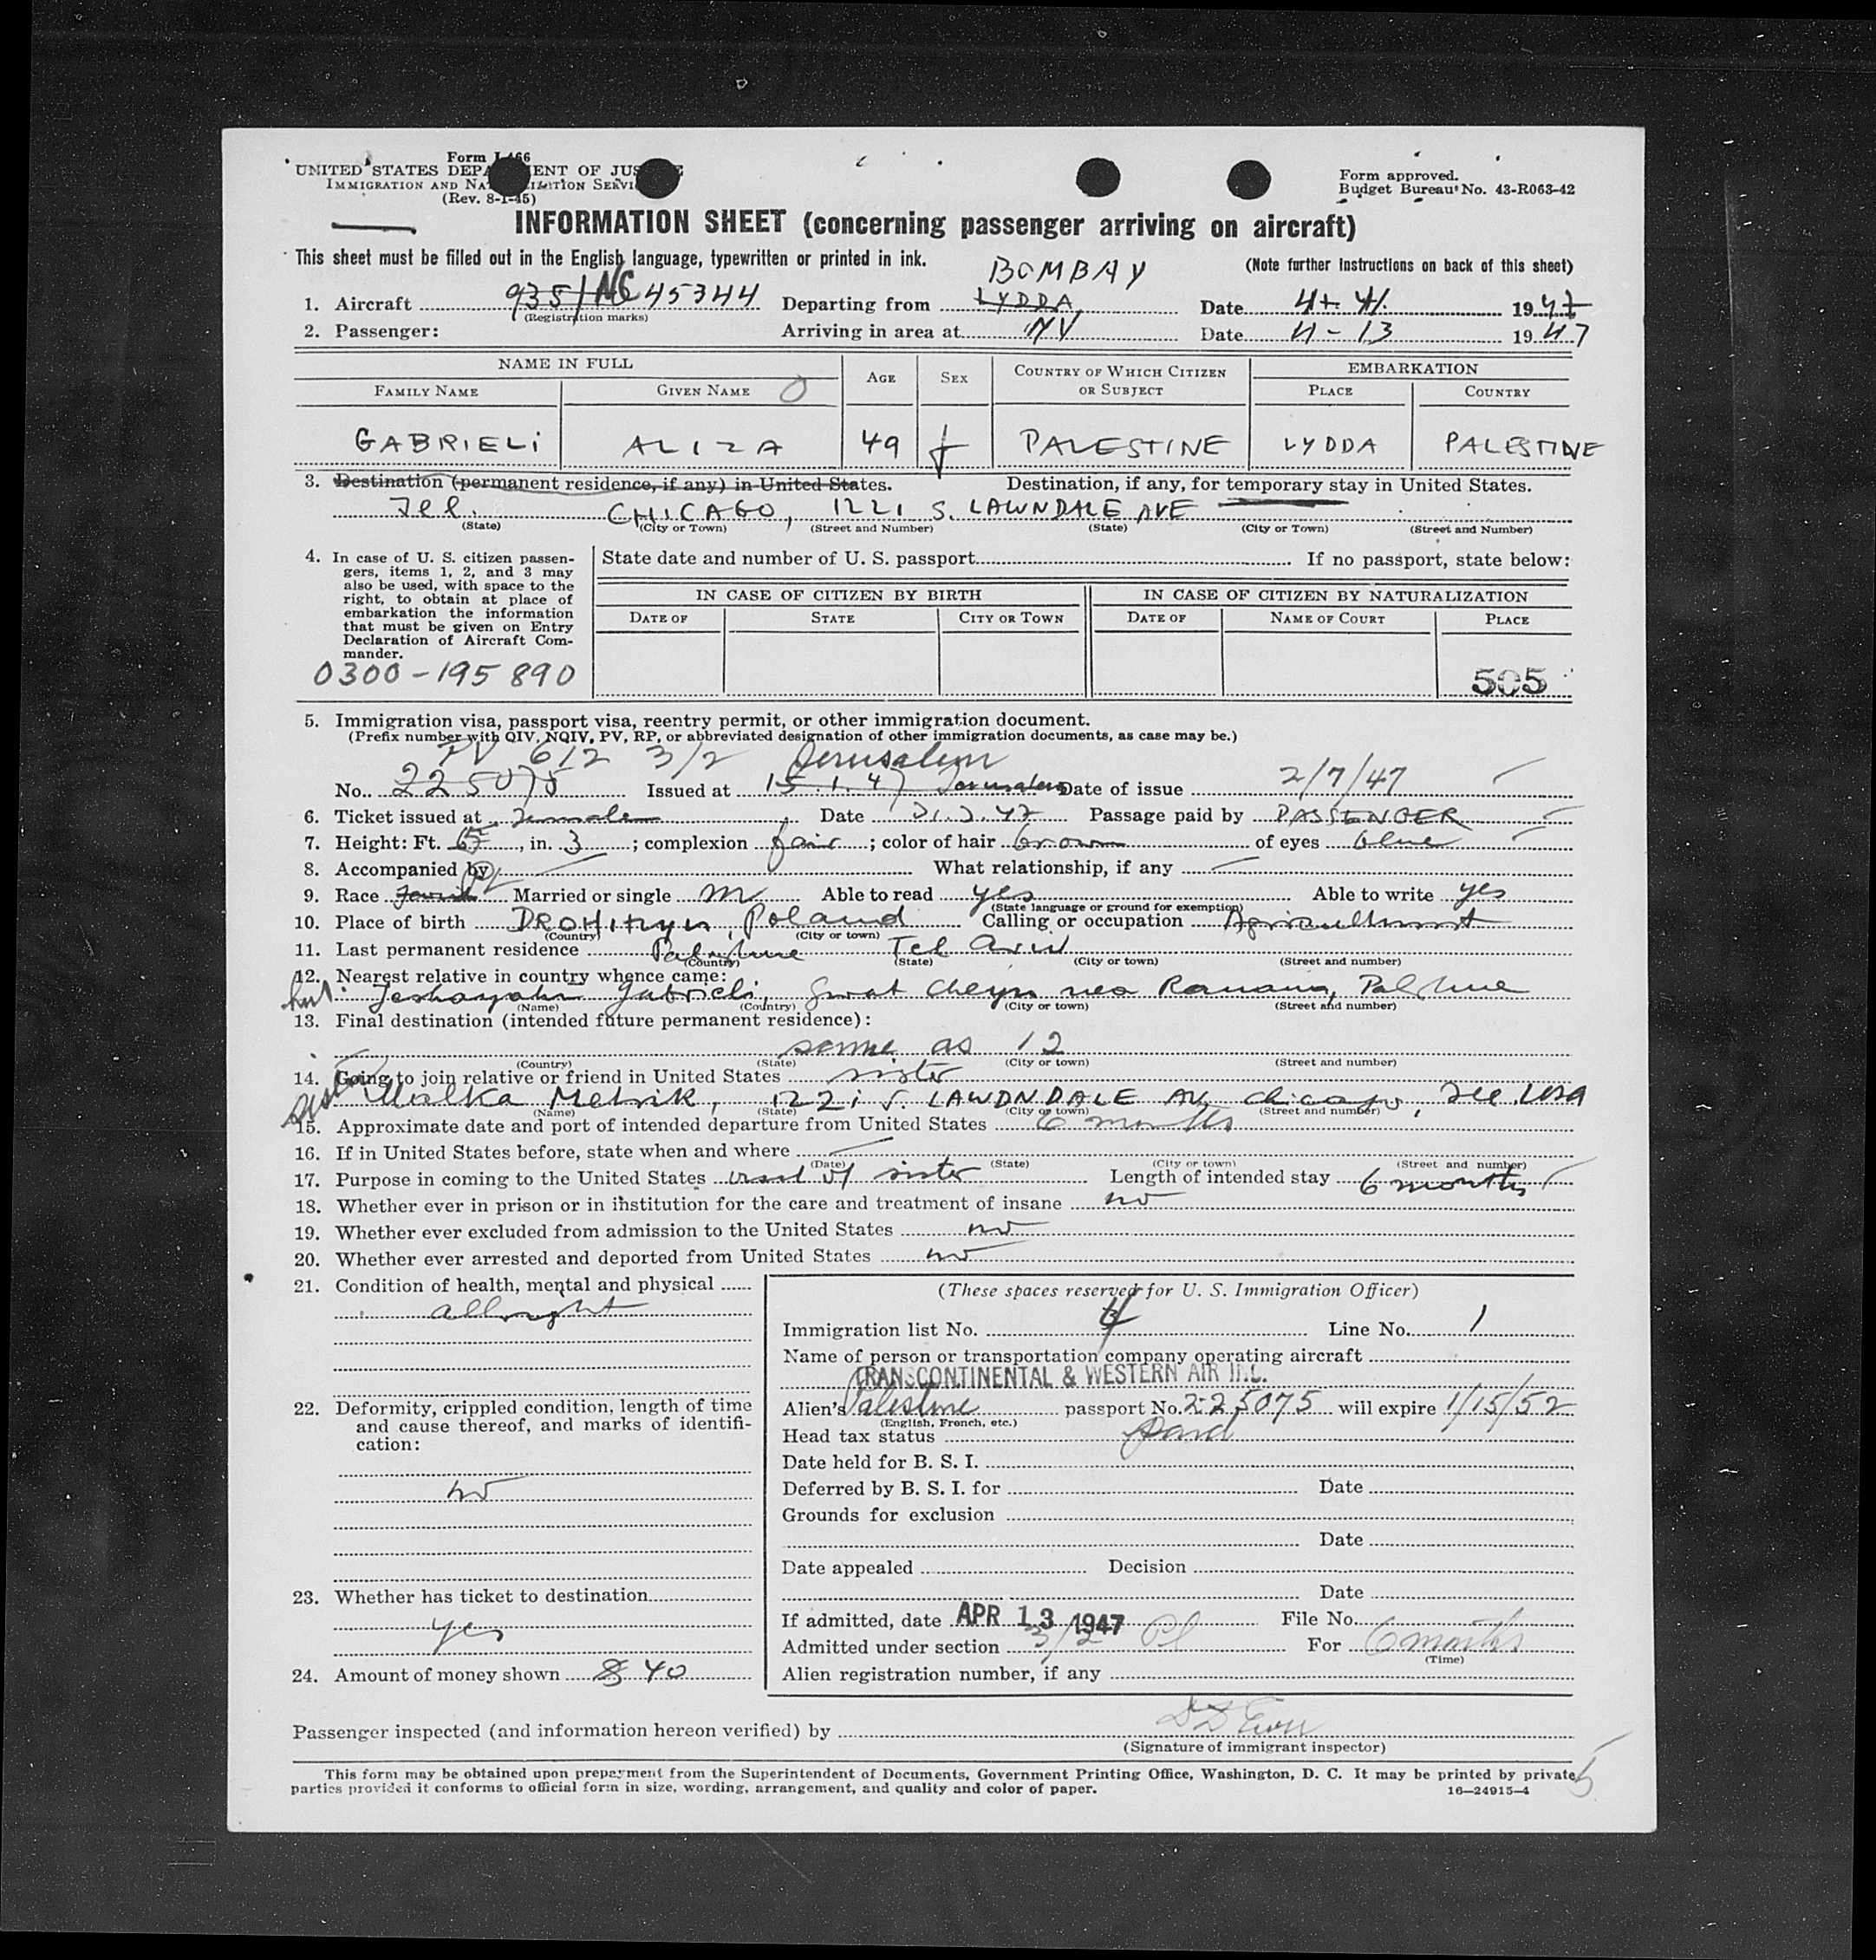 Form I-466
UNITED STATES DEPARTMENT OF JUSTICE
IMMIGRATION AND NATURALIZATION SERVICE
(Rev. 8-1-45)
Form approved.
Budget Bureau No. 43-R063-42
INFORMATION SHEET (concerning passenger arriving on aircraft)
This sheet must be filled out in the English language, typewritten or printed in ink.
(Note further instructions on back of this sheet)
BOMBAY
1. Aircraft 935/NC45344 Departing from LYDDA Date 4. 1947
(Registration marks)
2. Passenger: Arriving in area at NY Date 4-13 1947
NAME IN FULL AGE SEX COUNTRY OF WHICH CITIZEN OR SUBJECT EMBARKATION
FAMILY NAME GIVEN NAME PLACE COUNTRY
GABRIELI ALIZA 49 f PALESTINE LYDDA PALESTINE
3. Destination (permanent residence, if any) in United States. Destination, if any, for temporary stay in United States.
CHICAGO, 1221 S. LAWNDALE AVE
(State) (City or Town) (Street and Number) (State) (City or Town) (Street and Number)
4. In case of U. S. citizen passengers, items 1, 2, and 3 may
also be used, with space to the
right, to obtain at place of
embarkation the information
that must be given on Entry
Declaration of Aircraft Commander.
0300-195890
State date and number of U. S. passport If no passport, state below:
IN CASE OF CITIZEN BY BIRTH IN CASE OF CITIZEN BY NATURALIZATION
DATE OF STATE CITY OR TOWN DATE OF NAME OF COURT PLACE
505
5. Immigration visa, passport visa, reentry permit, or other immigration document.
(Prefix number with QIV, NQIV, PV, RP, or abbreviated designation of other immigration documents, as case may be.)
PV 612 3/2 Jerusalem
No. 225075 Issued at 15.1.47 Jerusalem Date of issue 2/7/47
6. Ticket issued at Date Passage paid by PASSENGER
7. Height: Ft. 5, in. 3; complexion fair; color of hair brown of eyes blue
8. Accompanied by What relationship, if any
9. Race Married or single M Able to read yes Able to write yes
(State language or ground for exemption)
10. Place of birth Poland Calling or occupation Agriculturist
(Country) (City or town)
11. Last permanent residence Palestine Tel Aviv
(Country) (State) (City or town) (Street and number)
12. Nearest relative in country whence came:
Jeshayahu Gabrieli, near Raanana, Palestine
(Name) (Country) (City or town) (Street and number)
13. Final destination (intended future permanent residence):
same as 12
(Country) (State) (City or town) (Street and number)
14. Going to join relative or friend in United States sister
Malka 1221 S. LAWDNDALE AV. Chicago, USA
(Name) (State) (City or town) (Street and number)
15. Approximate date and port of intended departure from United States 6 months
16. If in United States before, state when and where
(Date) (State) (City or town) (Street and number)
17. Purpose in coming to the United States of sister Length of intended stay 6 months
18. Whether ever in prison or in institution for the care and treatment of insane no
19. Whether ever excluded from admission to the United States no
20. Whether ever arrested and deported from United States no
21. Condition of health, mental and physical
allright
22. Deformity, crippled condition, length of time
and cause thereof, and marks of identification:
no
23. Whether has ticket to destination
yes
24. Amount of money shown $ 40
(These spaces reserved for U. S. Immigration Officer)
Immigration list No. 4 Line No. 1
Name of person or transportation company operating aircraft
TRANSCONTINENTAL & WESTERN AIR INC.
Alien's Palestine passport No. 225075 will expire 1/15/52
(English, French, etc.)
Head tax status Paid
Date held for B. S. I.
Deferred by B. S. I. for Date
Grounds for exclusion
Date
Date appealed Decision
Date
If admitted, date APR 13 1947 File No.
Admitted under section 3/2 For 6 months
(Time)
Alien registration number, if any
Passenger inspected (and information hereon verified) by
(Signature of immigrant inspector)
This form may be obtained upon prepayment from the Superintendent of Documents, Government Printing Office, Washington, D. C. It may be printed by private
parties provided it conforms to official form in size, wording, arrangement, and quality and color of paper.
16—24915-4
5